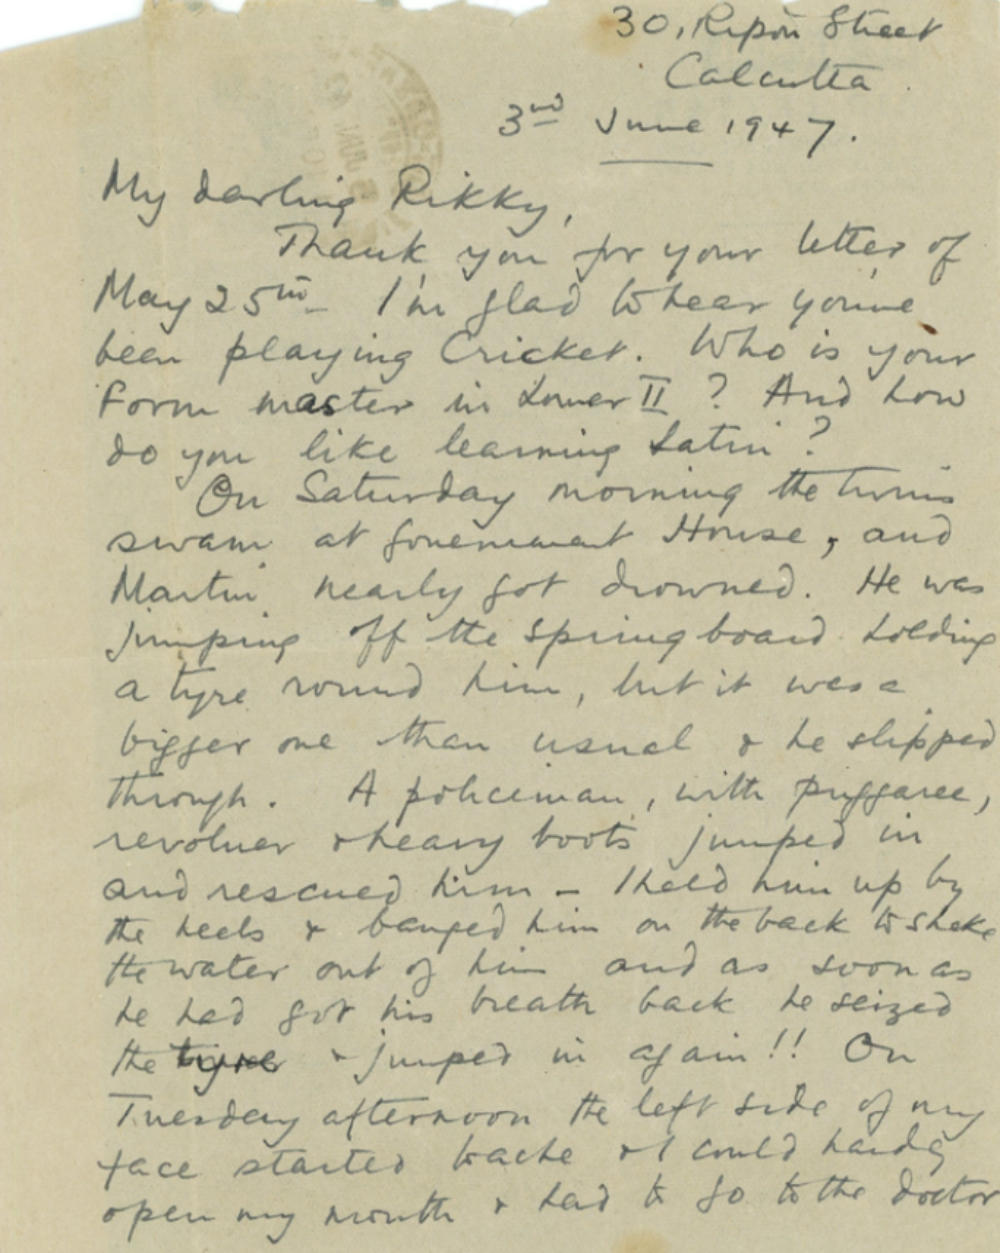 30, Ripon Street
Calcutta
3nd June 1947.
My darling Rikky,
Thank you for your letter of
May 25th I'm glad to hear you've
been playing Cricket. Who is your
Form master in Lower II ? And how
do you like learning Latin ?
On Saturday morning the twins
swam at Government House, and
Martin nearly got drowned. He was
jumping off the springboard holding
a tyre round him, but it was a
bigger one than usual & he slipped
through. A policeman, with puggaree,
revolver & heavy boots jumped in
and rescued him - I held him up by
the heels & banged him on the back to shake
the water out of him and as soon as
he had got his breath back he seized
the tyre & jumped in again!! On
Tuesday afternoon the left side of my
face started to ache & I could hardly
open my mouth & had to go to the doctor